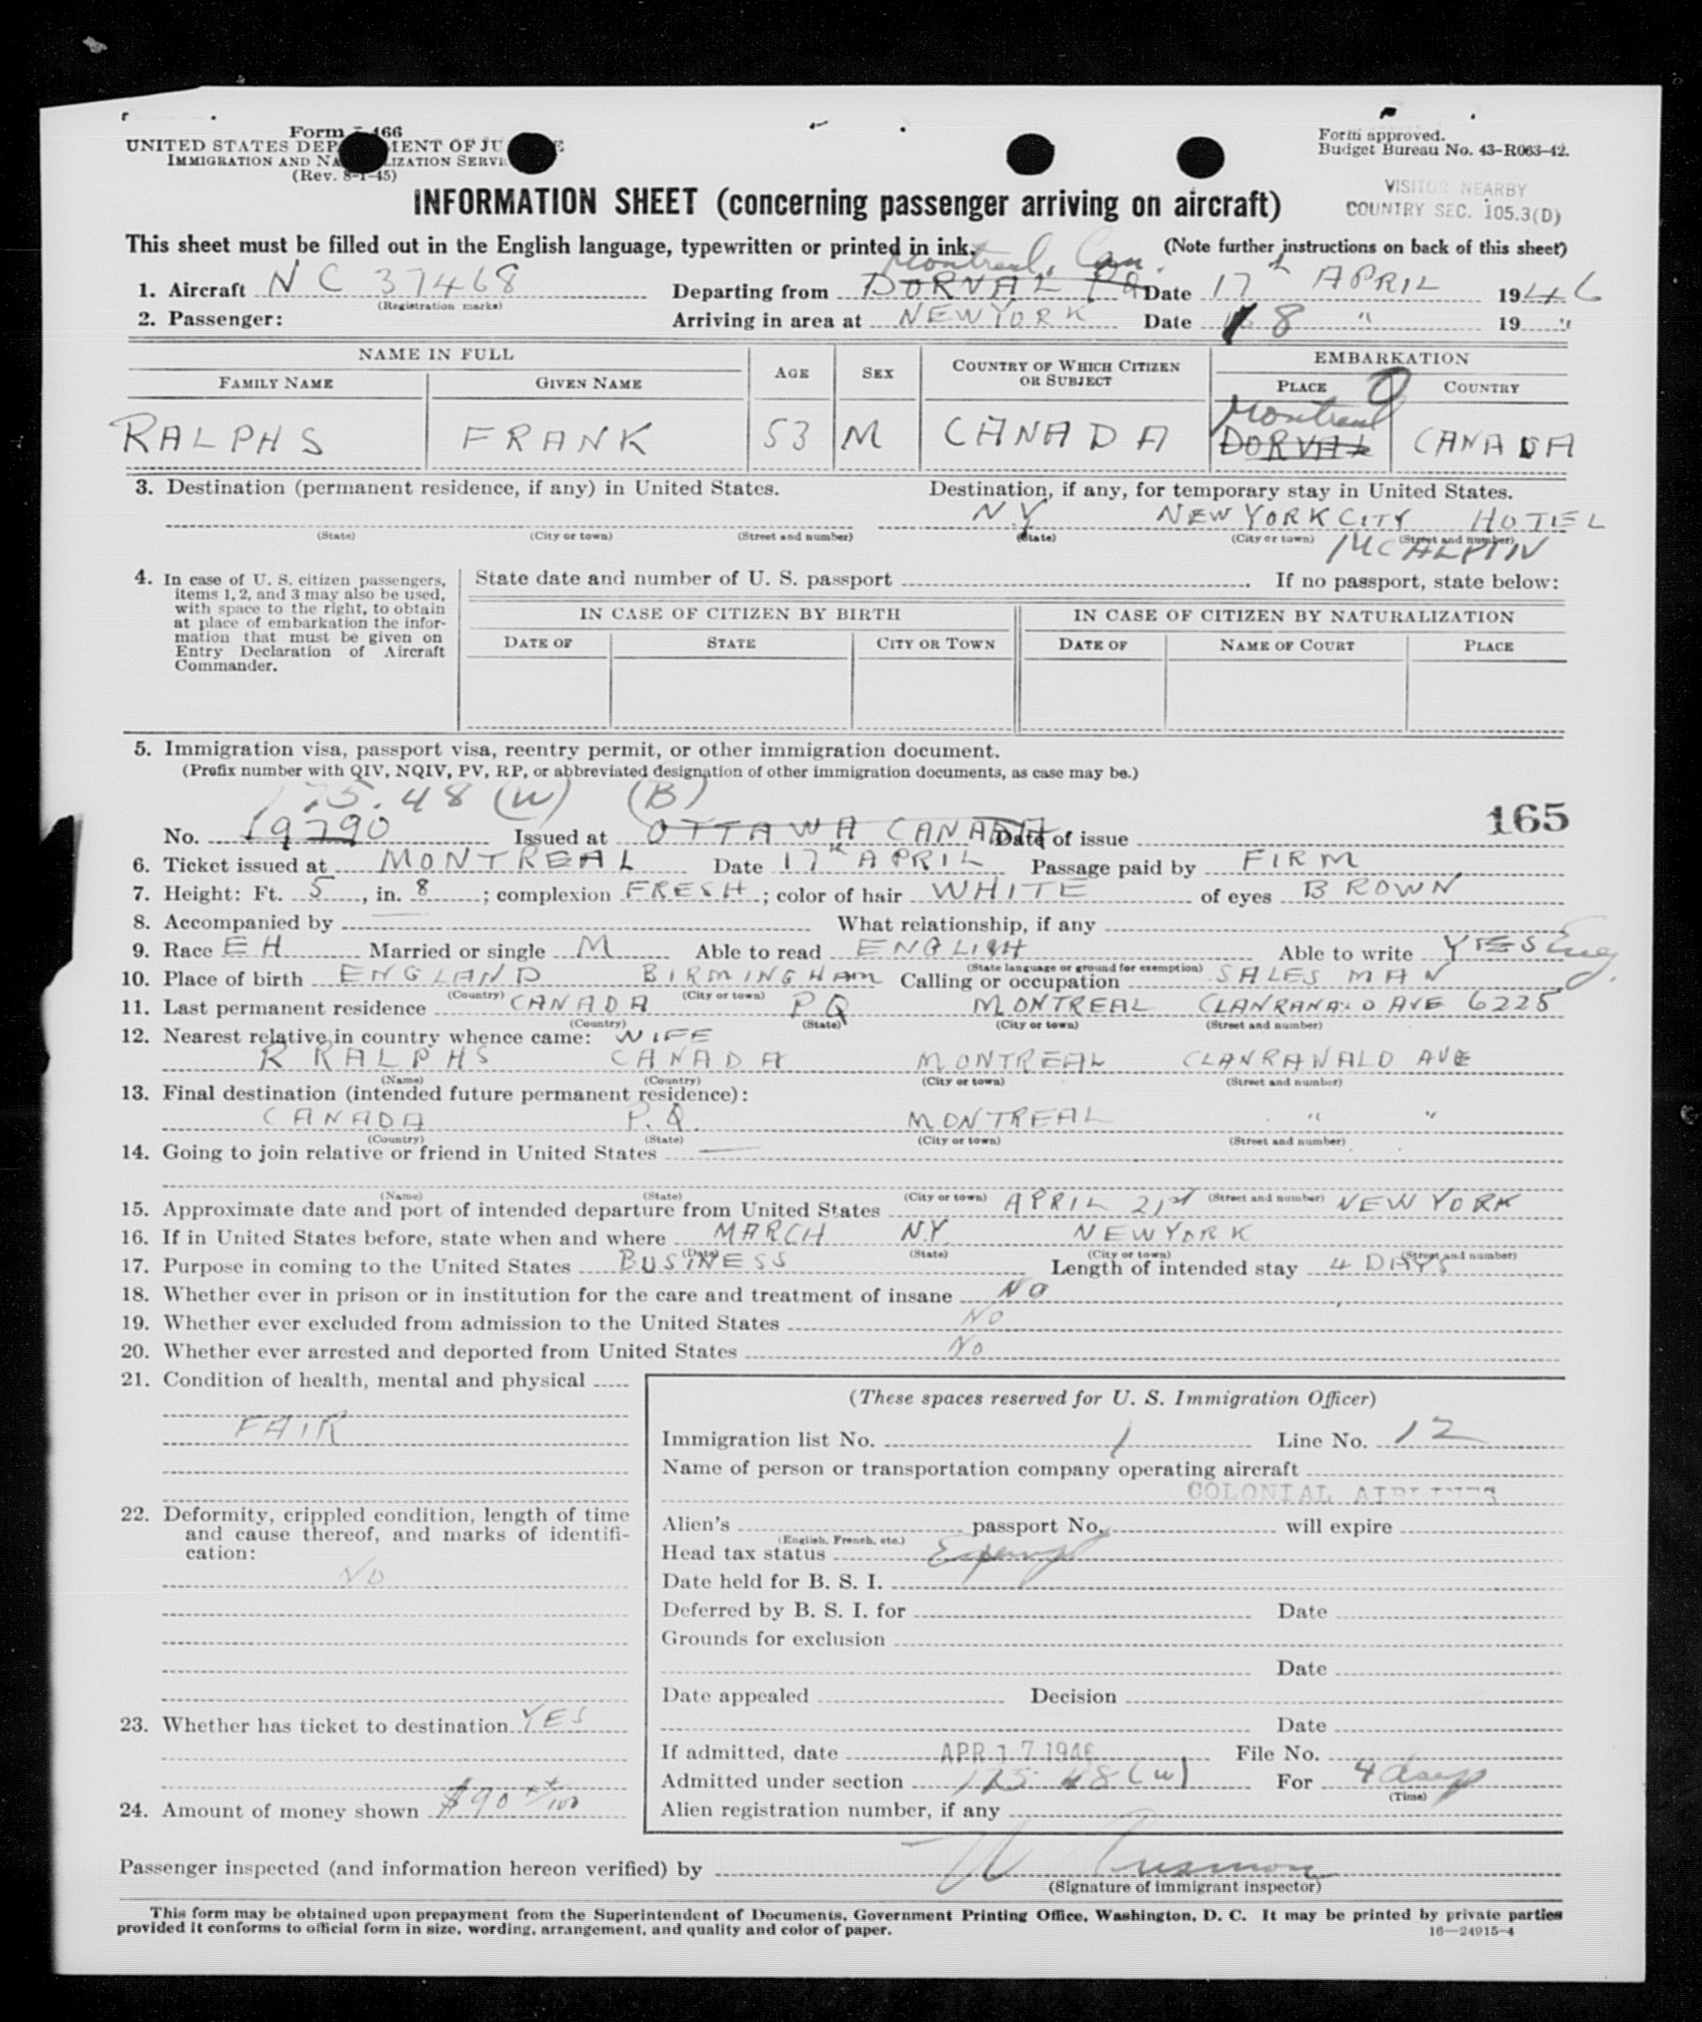 Form I-466
UNITED STATES DEPARTMENT OF JUSTICE
IMMIGRATION AND NATURALIZATION SERVICE
(Rev. 8-1-45)
Form approved.
Budget Bureau No. 43-R063-42.
VISITOR NEARBY
COUNTRY SEC. 105.3(D)
INFORMATION SHEET (concerning passenger arriving on aircraft)
This sheet must be filled out in the English language, typewritten or printed in ink. (Note further instructions on back of this sheet)
Montreal, Can.
1. Aircraft NC 37468 Departing from DORVAL PQ Date 17th APRIL 1946
(Registration marks)
2. Passenger: Arriving in area at NEW YORK Date 18 " 19 "
NAME IN FULL AGE SEX COUNTRY OF WHICH CITIZEN OR SUBJECT EMBARKATION
FAMILY NAME GIVEN NAME PLACE COUNTRY
Montreal
RALPHS FRANK 53 M CANADA DORVAL CANADA
3. Destination (permanent residence, if any) in United States. Destination, if any, for temporary stay in United States.
N.Y NEW YORK CITY HOTEL
(State) (City or town) (Street and number) (State) (City or town) (Street and number)
MCALPIN
4. In case of U. S. citizen passengers, items 1, 2, and 3 may also be used, with space to the right, to obtain at place of embarkation the information that must be given on Entry Declaration of Aircraft Commander.
State date and number of U. S. passport If no passport, state below:
IN CASE OF CITIZEN BY BIRTH IN CASE OF CITIZEN BY NATURALIZATION
DATE OF STATE CITY OR TOWN DATE OF NAME OF COURT PLACE
5. Immigration visa, passport visa, reentry permit, or other immigration document.
(Prefix number with QIV, NQIV, PV, RP, or abbreviated designation of other immigration documents, as case may be.)
175.48 (W) (B)
165
No. 19790 Issued at OTTAWA CANADA Date of issue
6. Ticket issued at MONTREAL Date 17th APRIL Passage paid by FIRM
7. Height: Ft. 5, in. 8; complexion FRESH; color of hair WHITE of eyes BROWN
8. Accompanied by — What relationship, if any
9. Race EH Married or single M Able to read ENGLISH Able to write YES Eng.
(State language or ground for exemption)
10. Place of birth ENGLAND BIRMINGHAM Calling or occupation SALESMAN
(Country) (City or town)
11. Last permanent residence CANADA PQ MONTREAL CLANRANALD AVE 6225
(Country) (State) (City or town) (Street and number)
12. Nearest relative in country whence came: WIFE
R RALPHS CANADA MONTREAL CLANRANALD AVE
(Name) (Country) (City or town) (Street and number)
13. Final destination (intended future permanent residence):
CANADA P.Q. MONTREAL " "
(Country) (State) (City or town) (Street and number)
14. Going to join relative or friend in United States —
(Name) (State) (City or town) (Street and number)
15. Approximate date and port of intended departure from United States APRIL 21st NEW YORK
16. If in United States before, state when and where MARCH N.Y. NEW YORK
(Date) (State) (City or town) (Street and number)
17. Purpose in coming to the United States BUSINESS Length of intended stay 4 DAYS
18. Whether ever in prison or in institution for the care and treatment of insane NO
19. Whether ever excluded from admission to the United States NO
20. Whether ever arrested and deported from United States NO
21. Condition of health, mental and physical
FAIR
22. Deformity, crippled condition, length of time and cause thereof, and marks of identification:
NO
23. Whether has ticket to destination YES
24. Amount of money shown $90 xx/100
(These spaces reserved for U. S. Immigration Officer)
Immigration list No. 1 Line No. 12
Name of person or transportation company operating aircraft
COLONIAL AIRLINES
Alien's passport No. will expire
(English, French, etc.)
Head tax status Exempt
Date held for B. S. I.
Deferred by B. S. I. for Date
Grounds for exclusion
Date
Date appealed Decision
Date
If admitted, date APR 17 1946 File No.
Admitted under section 175.48 (W) For 4 days
(Time)
Alien registration number, if any
Passenger inspected (and information hereon verified) by
(Signature of immigrant inspector)
This form may be obtained upon prepayment from the Superintendent of Documents, Government Printing Office, Washington, D. C. It may be printed by private parties
provided it conforms to official form in size, wording, arrangement, and quality and color of paper.
16—24915-4